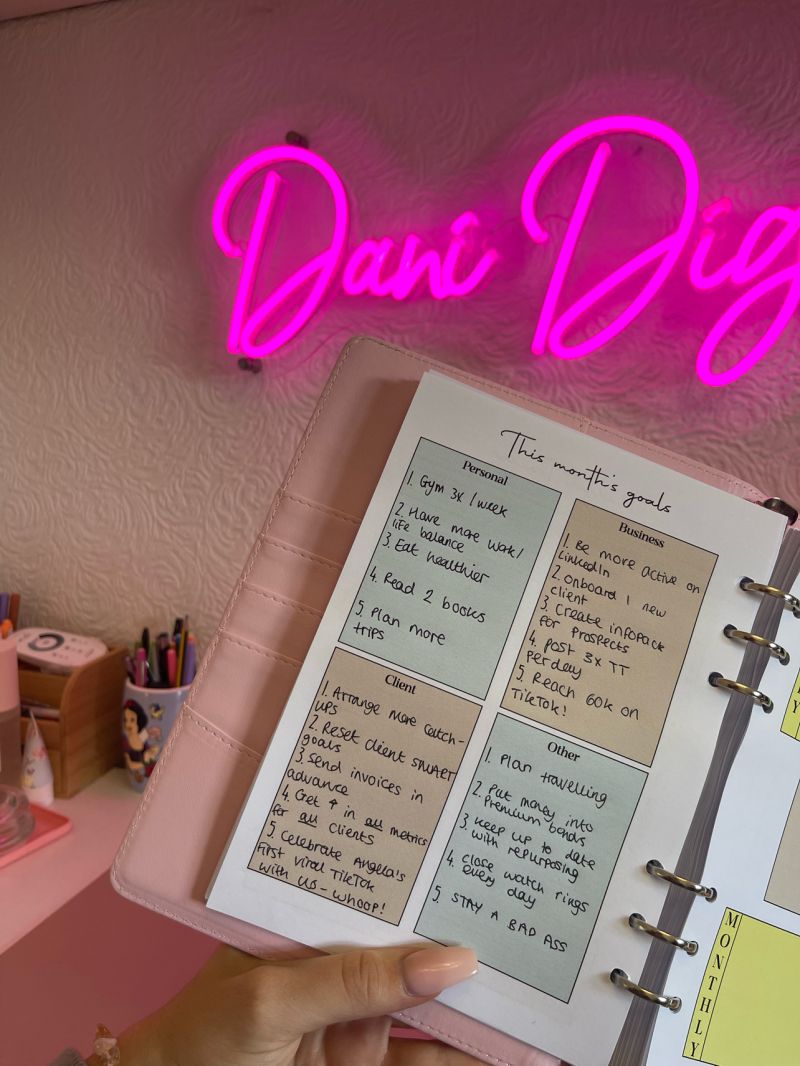 Dani Dig
This month's goals
Personal
1. Gym 3x / week
2. Have more work/
life balance
3. Eat healthier
4. Read 2 books
5. Plan more
trips
Business
1. Be more active on
LinkedIn
2. Onboard 1 new
client
3. Create infopack
for prospects
4. Post 3x TT
per day
5. Reach 60k on
TikTok!
Client
1. Arrange more catch-
ups
2. Reset client SMART
goals
3. Send invoices in
advance
4. Get ↑ in all metrics
for all clients
5. Celebrate Angela's
first viral TikTok
with us - whoop!
Other
1. Plan travelling
2. Put money into
premium bonds
3. Keep up to date
with repurposing
4. Close watch rings
every day
5. STAY A BAD ASS
Y
MONTHLY